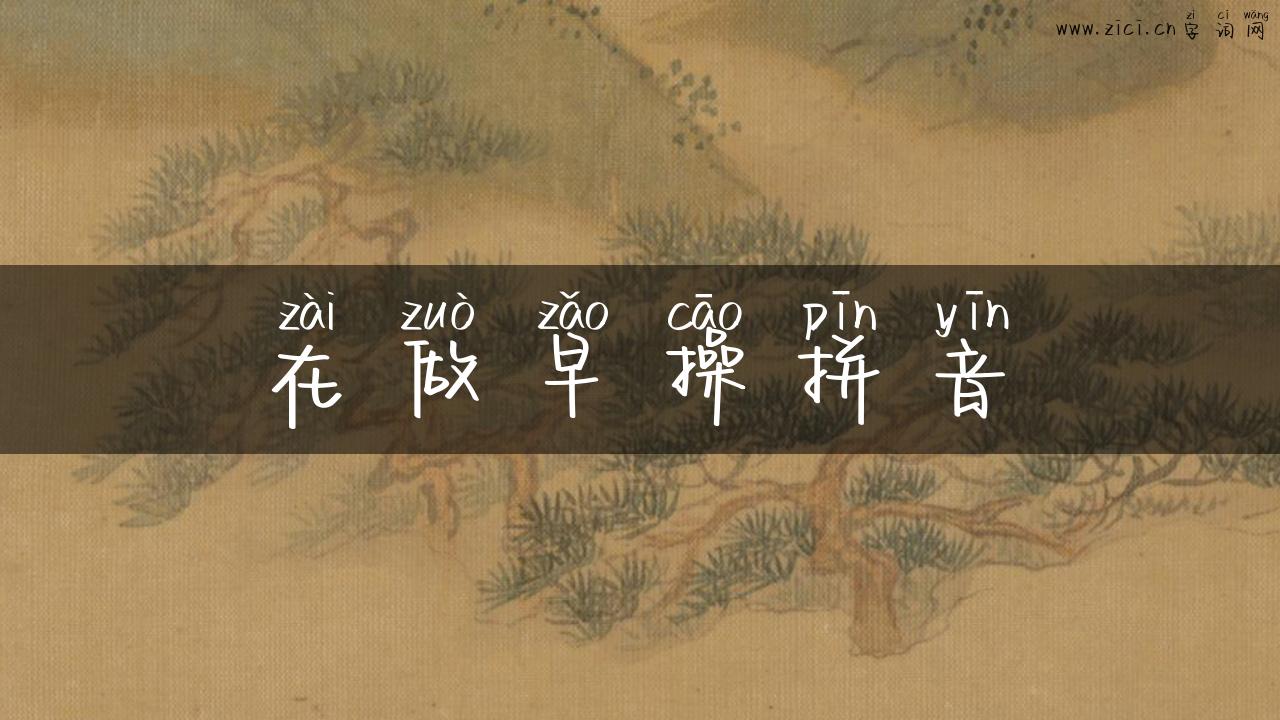 zì cí wǎng
www.zici.cn 字词网
zài zuò zǎo cāo pīn yīn
在做早操拼音